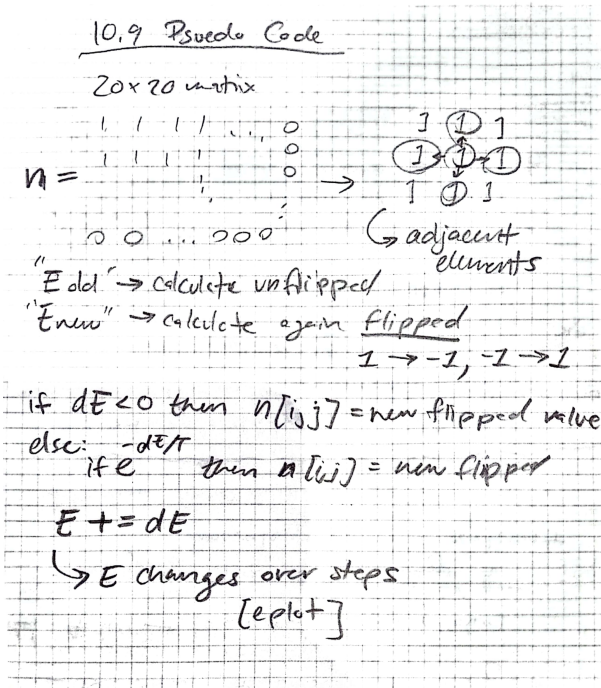 10.9 Psuedo Code
20x20 matrix
1 1 1 1 ... 0
1 1 1 1 0
0
n =
0 0 ... 0 0 0
→
1 1 1
1 1 1
1 1 1
↳ adjacent
elements
"E old" → calculate unflipped
"Enew" → calculate again flipped
1 → -1, -1 → 1
if dE < 0 then n[i,j] = new flipped value
else:
if e^-dE/T then n[i,j] = new flipped
E += dE
↳ E changes over steps
[eplot]